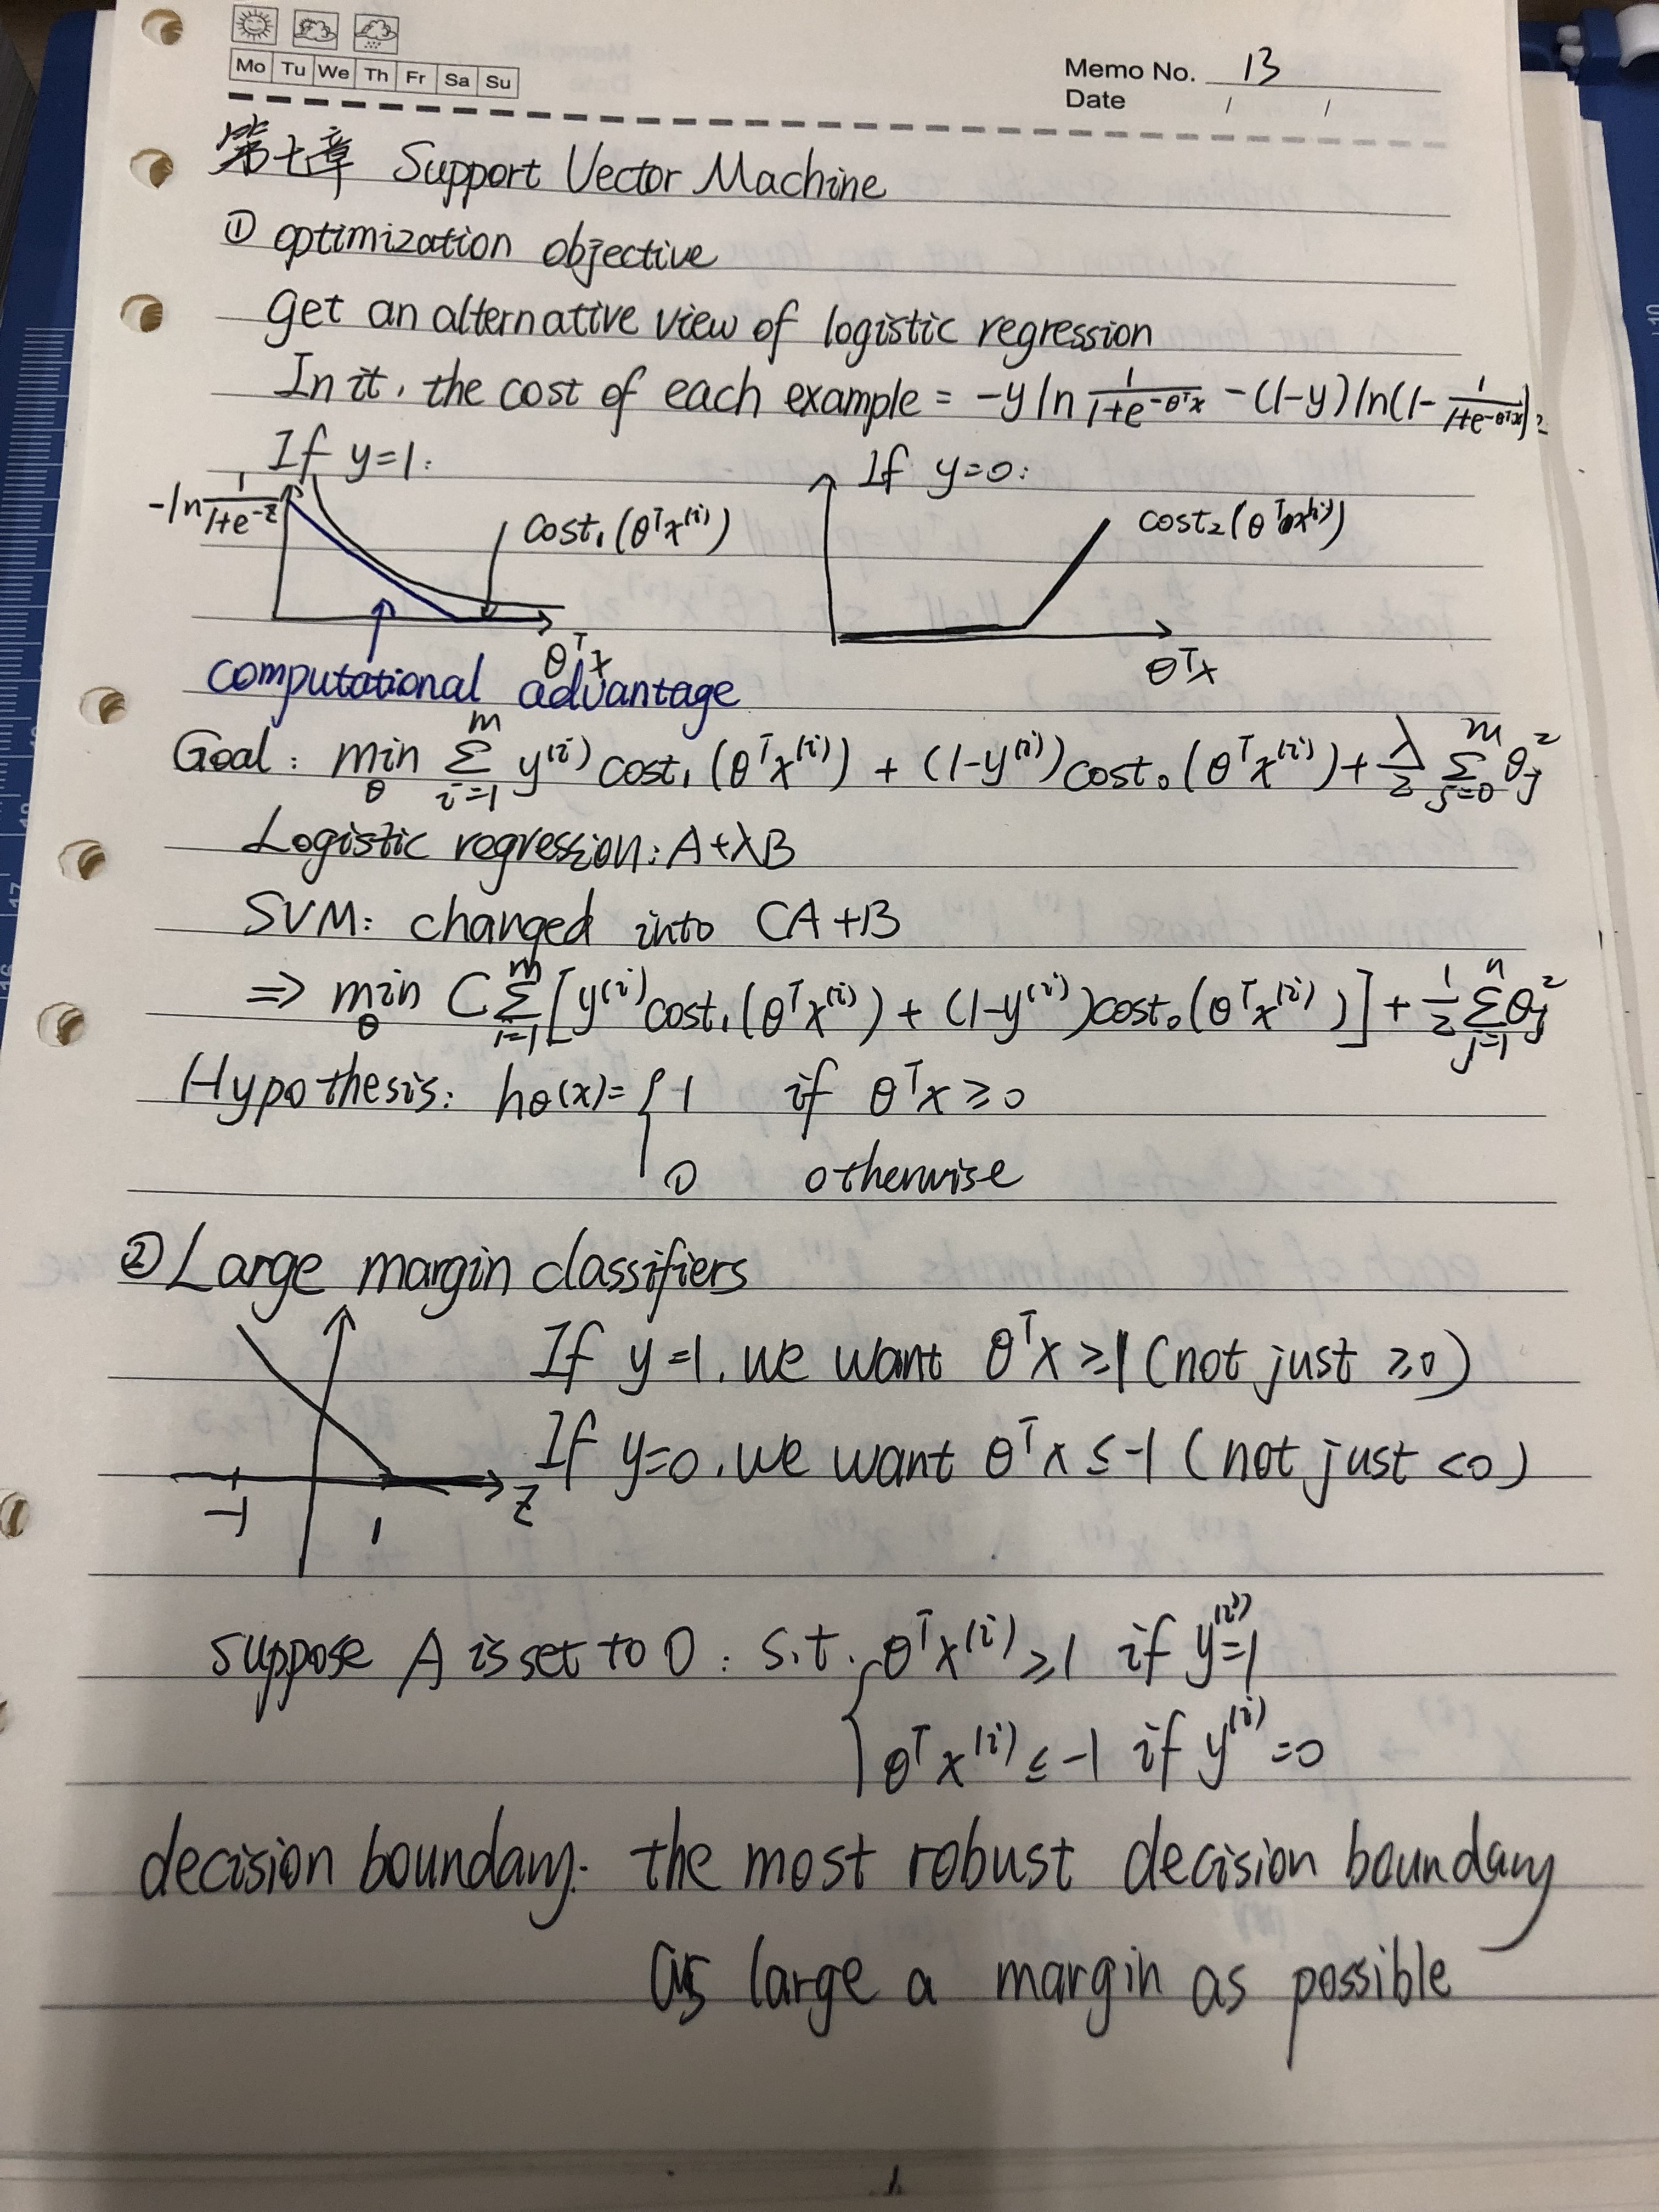 Mo Tu We Th Fr Sa Su
Memo No. 13
Date / /
第七章 Support Vector Machine
① optimization objective
get an alternative view of logistic regression
In it, the cost of each example = -y ln 1/(1+e^(-θᵀx)) - (1-y) ln(1- 1/(1+e^(-θᵀx)))
If y=1:
If y=0:
-ln 1/(1+e^(-z))
cost₁(θᵀx⁽ⁱ⁾)
cost₂(θᵀx⁽ⁱ⁾)
θᵀx
θᵀx
computational advantage
Goal: min_θ Σ_{i=1}^{m} y⁽ⁱ⁾cost₁(θᵀx⁽ⁱ⁾) + (1-y⁽ⁱ⁾)cost₀(θᵀx⁽ⁱ⁾) + λ/2 Σ_{j=0}^{m} θⱼ²
Logistic regression: A+λB
SVM: changed into CA+B
⇒ min_θ C Σ_{i=1}^{m} [y⁽ⁱ⁾cost₁(θᵀx⁽ⁱ⁾) + (1-y⁽ⁱ⁾)cost₀(θᵀx⁽ⁱ⁾)] + 1/2 Σ_{j=1}^{n} θⱼ²
Hypothesis: hθ(x) = { 1 if θᵀx ≥ 0
0 otherwise
② Large margin classifiers
If y=1, we want θᵀx ≥ 1 (not just ≥0)
If y=0, we want θᵀx ≤ -1 (not just <0)
-1 1 z
suppose A is set to 0: s.t. { θᵀx⁽ⁱ⁾ ≥ 1 if y⁽ⁱ⁾=1
θᵀx⁽ⁱ⁾ ≤ -1 if y⁽ⁱ⁾=0
decision boundary: the most robust decision boundary
as large a margin as possible